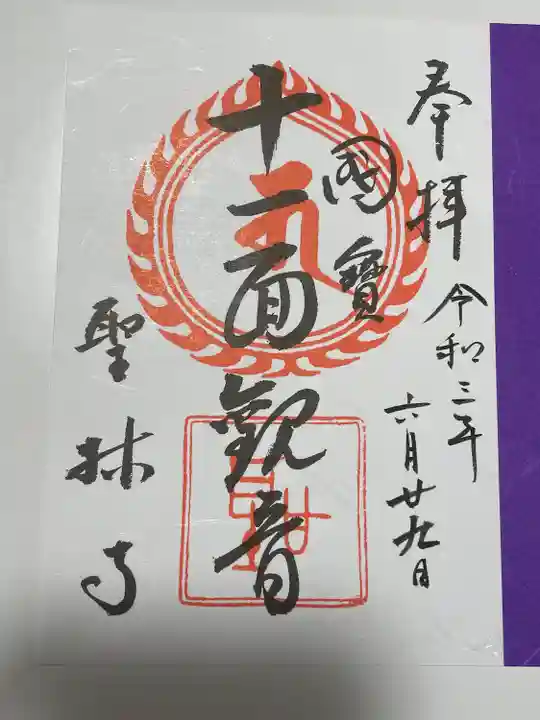 奉拝
令和三年
六月廿九日
國寶
十一面觀音
聖林寺